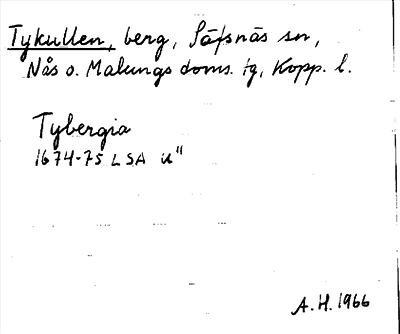 Tykullen, berg, Säfsnäs sn,
Nås o. Malungs doms. tg, Kopp. l.
Tybergia
1674-75 LSA u"
A.H. 1966